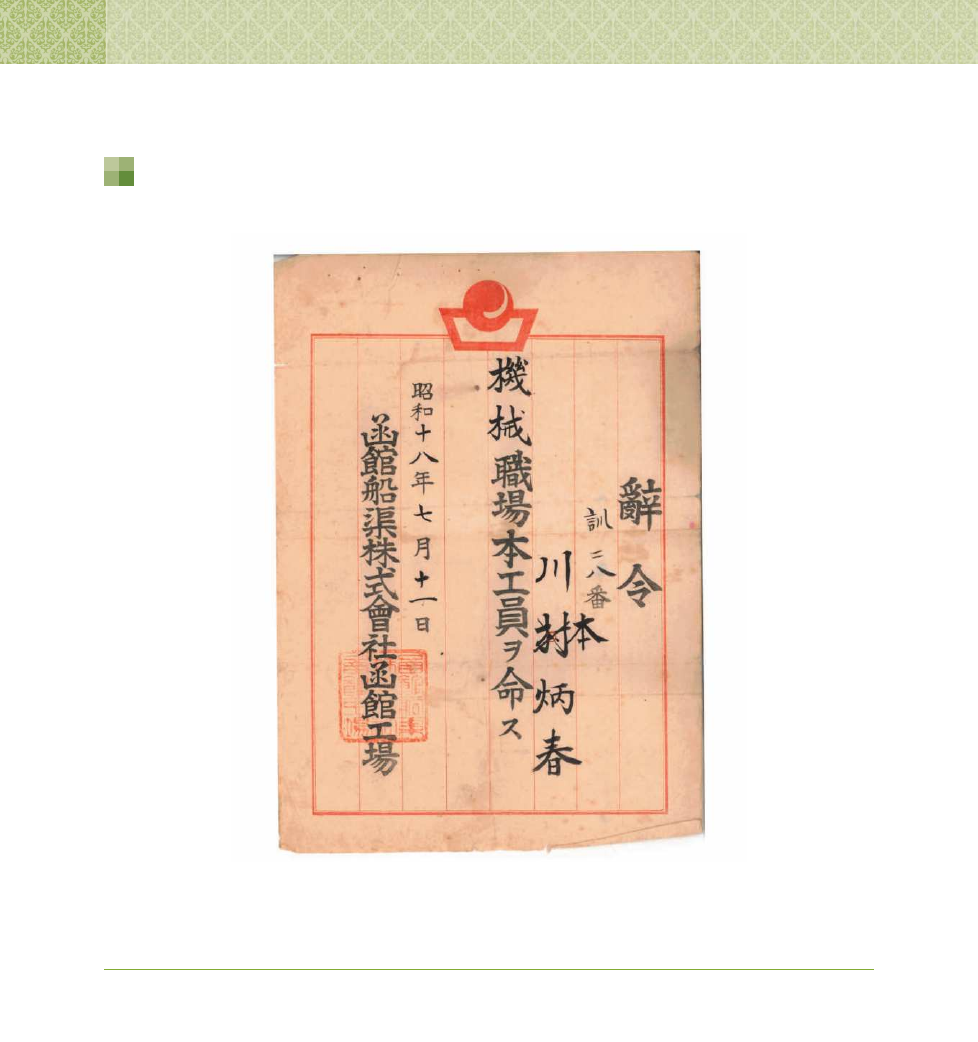 辭令
訓二八番
川村炳春
本
機械職場本工員ヲ命ス
昭和十八年七月十一日
函館船渠株式會社函館工場